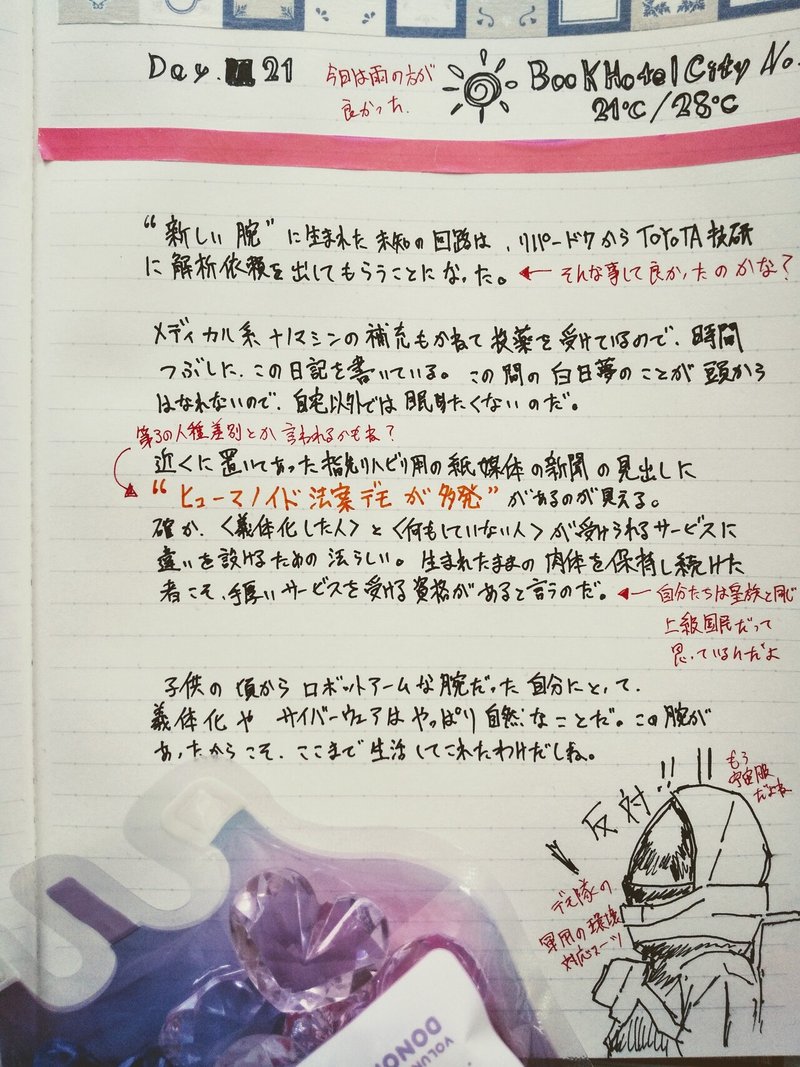 Day. 21
今日は雨の方が
良かった.
BooKHotelCity No.
21℃/28℃
“新しい腕”に生まれた未知の回路は、リパードクからTOYOTA技研
に解析依頼を出してもらうことになった。
← そんな事して良かったのかな？
メディカル系ナノマシンの補充もかねて投薬を受けているので、時間
つぶしに、この日記を書いている。この間の白日夢のことが頭から
はなれないので、自宅以外では眠りたくないのだ。
第3の人種差別とか言われるかもね？
近くに置いてあった指先リハビリ用の紙媒体の新聞の見出しに
“ヒューマノイド法案デモが多発”があるのが見える。
確か、〈義体化した人〉と〈何もしていない人〉が受けられるサービスに
違いを設けるための法らしい。生まれたままの肉体を保持し続けた
者こそ、手厚いサービスを受ける資格があると言うのだ。
← 自分たちは皇族と同じ
上級国民だって
思っているんだよ
子供の頃からロボットアームな腕だった自分にとって、
義体化やサイバーウェアはやっぱり自然なことだ。この腕が
あったからこそ、ここまで生活してこれたわけだしね。
もう
宇宙服
だよね
反対!!
デモ隊の
軍用の環境
対応スーツ
VOLUN
DONO